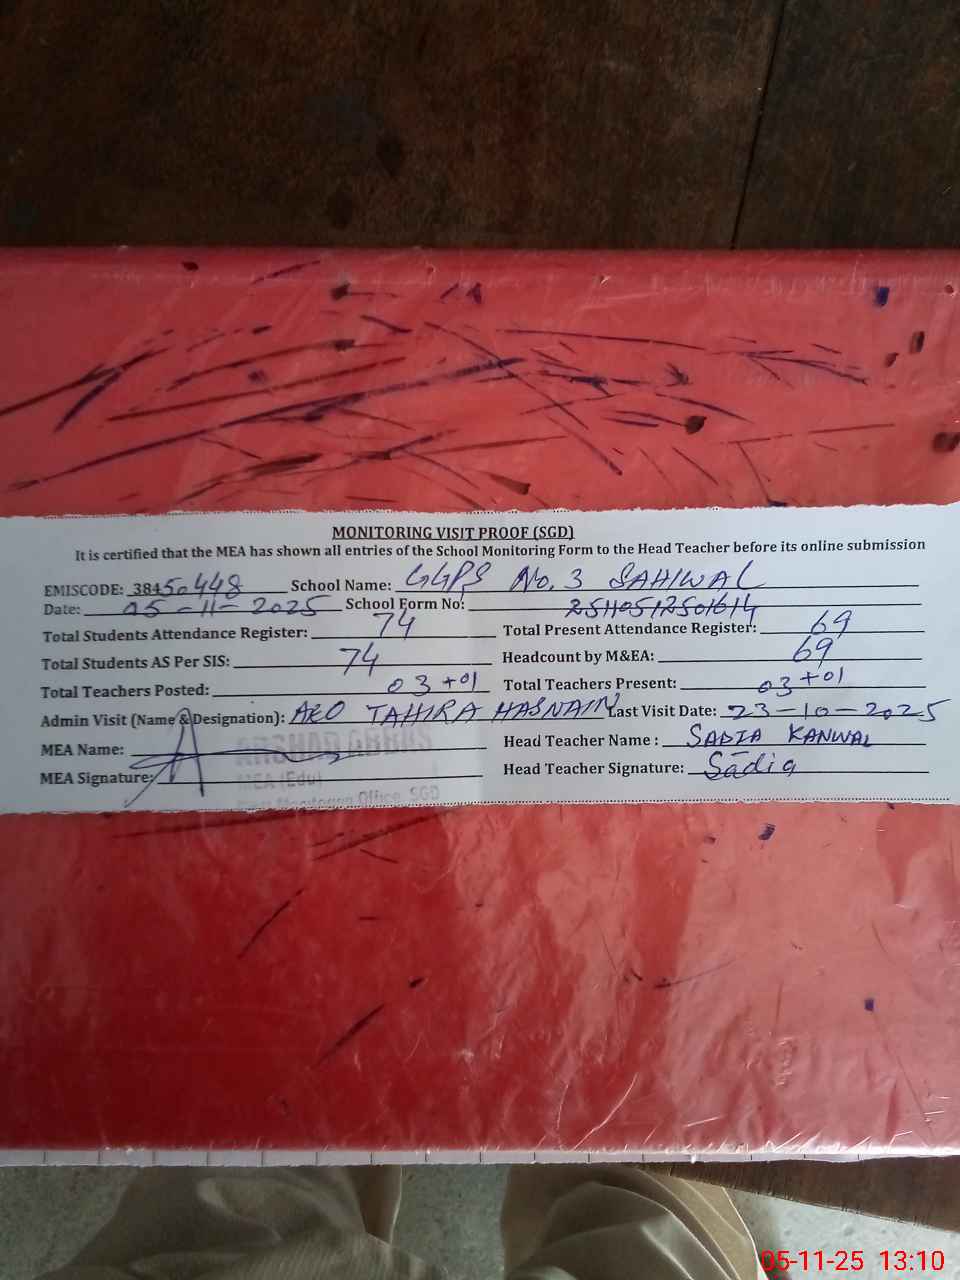 MONITORING VISIT PROOF (SGD)
It is certified that the MEA has shown all entries of the School Monitoring Form to the Head Teacher before its online submission
EMISCODE: 38450448 School Name: GGPS No. 3 SAHIWAL
Date: 05-11-2025 School Form No: 25110512501614
Total Students Attendance Register: 74 Total Present Attendance Register: 69
Total Students AS Per SIS: 74 Headcount by M&EA: 69
Total Teachers Posted: 03+01 Total Teachers Present: 03+01
Admin Visit (Name & Designation): AEO TAHIRA HASNAIN Last Visit Date: 23-10-2025
MEA Name: ARSHAD ABBAS Head Teacher Name : SADIA KANWAL
MEA Signature: MEA (Edu) Head Teacher Signature: Sadia
Monitoring Office, SGD
05-11-25 13:10